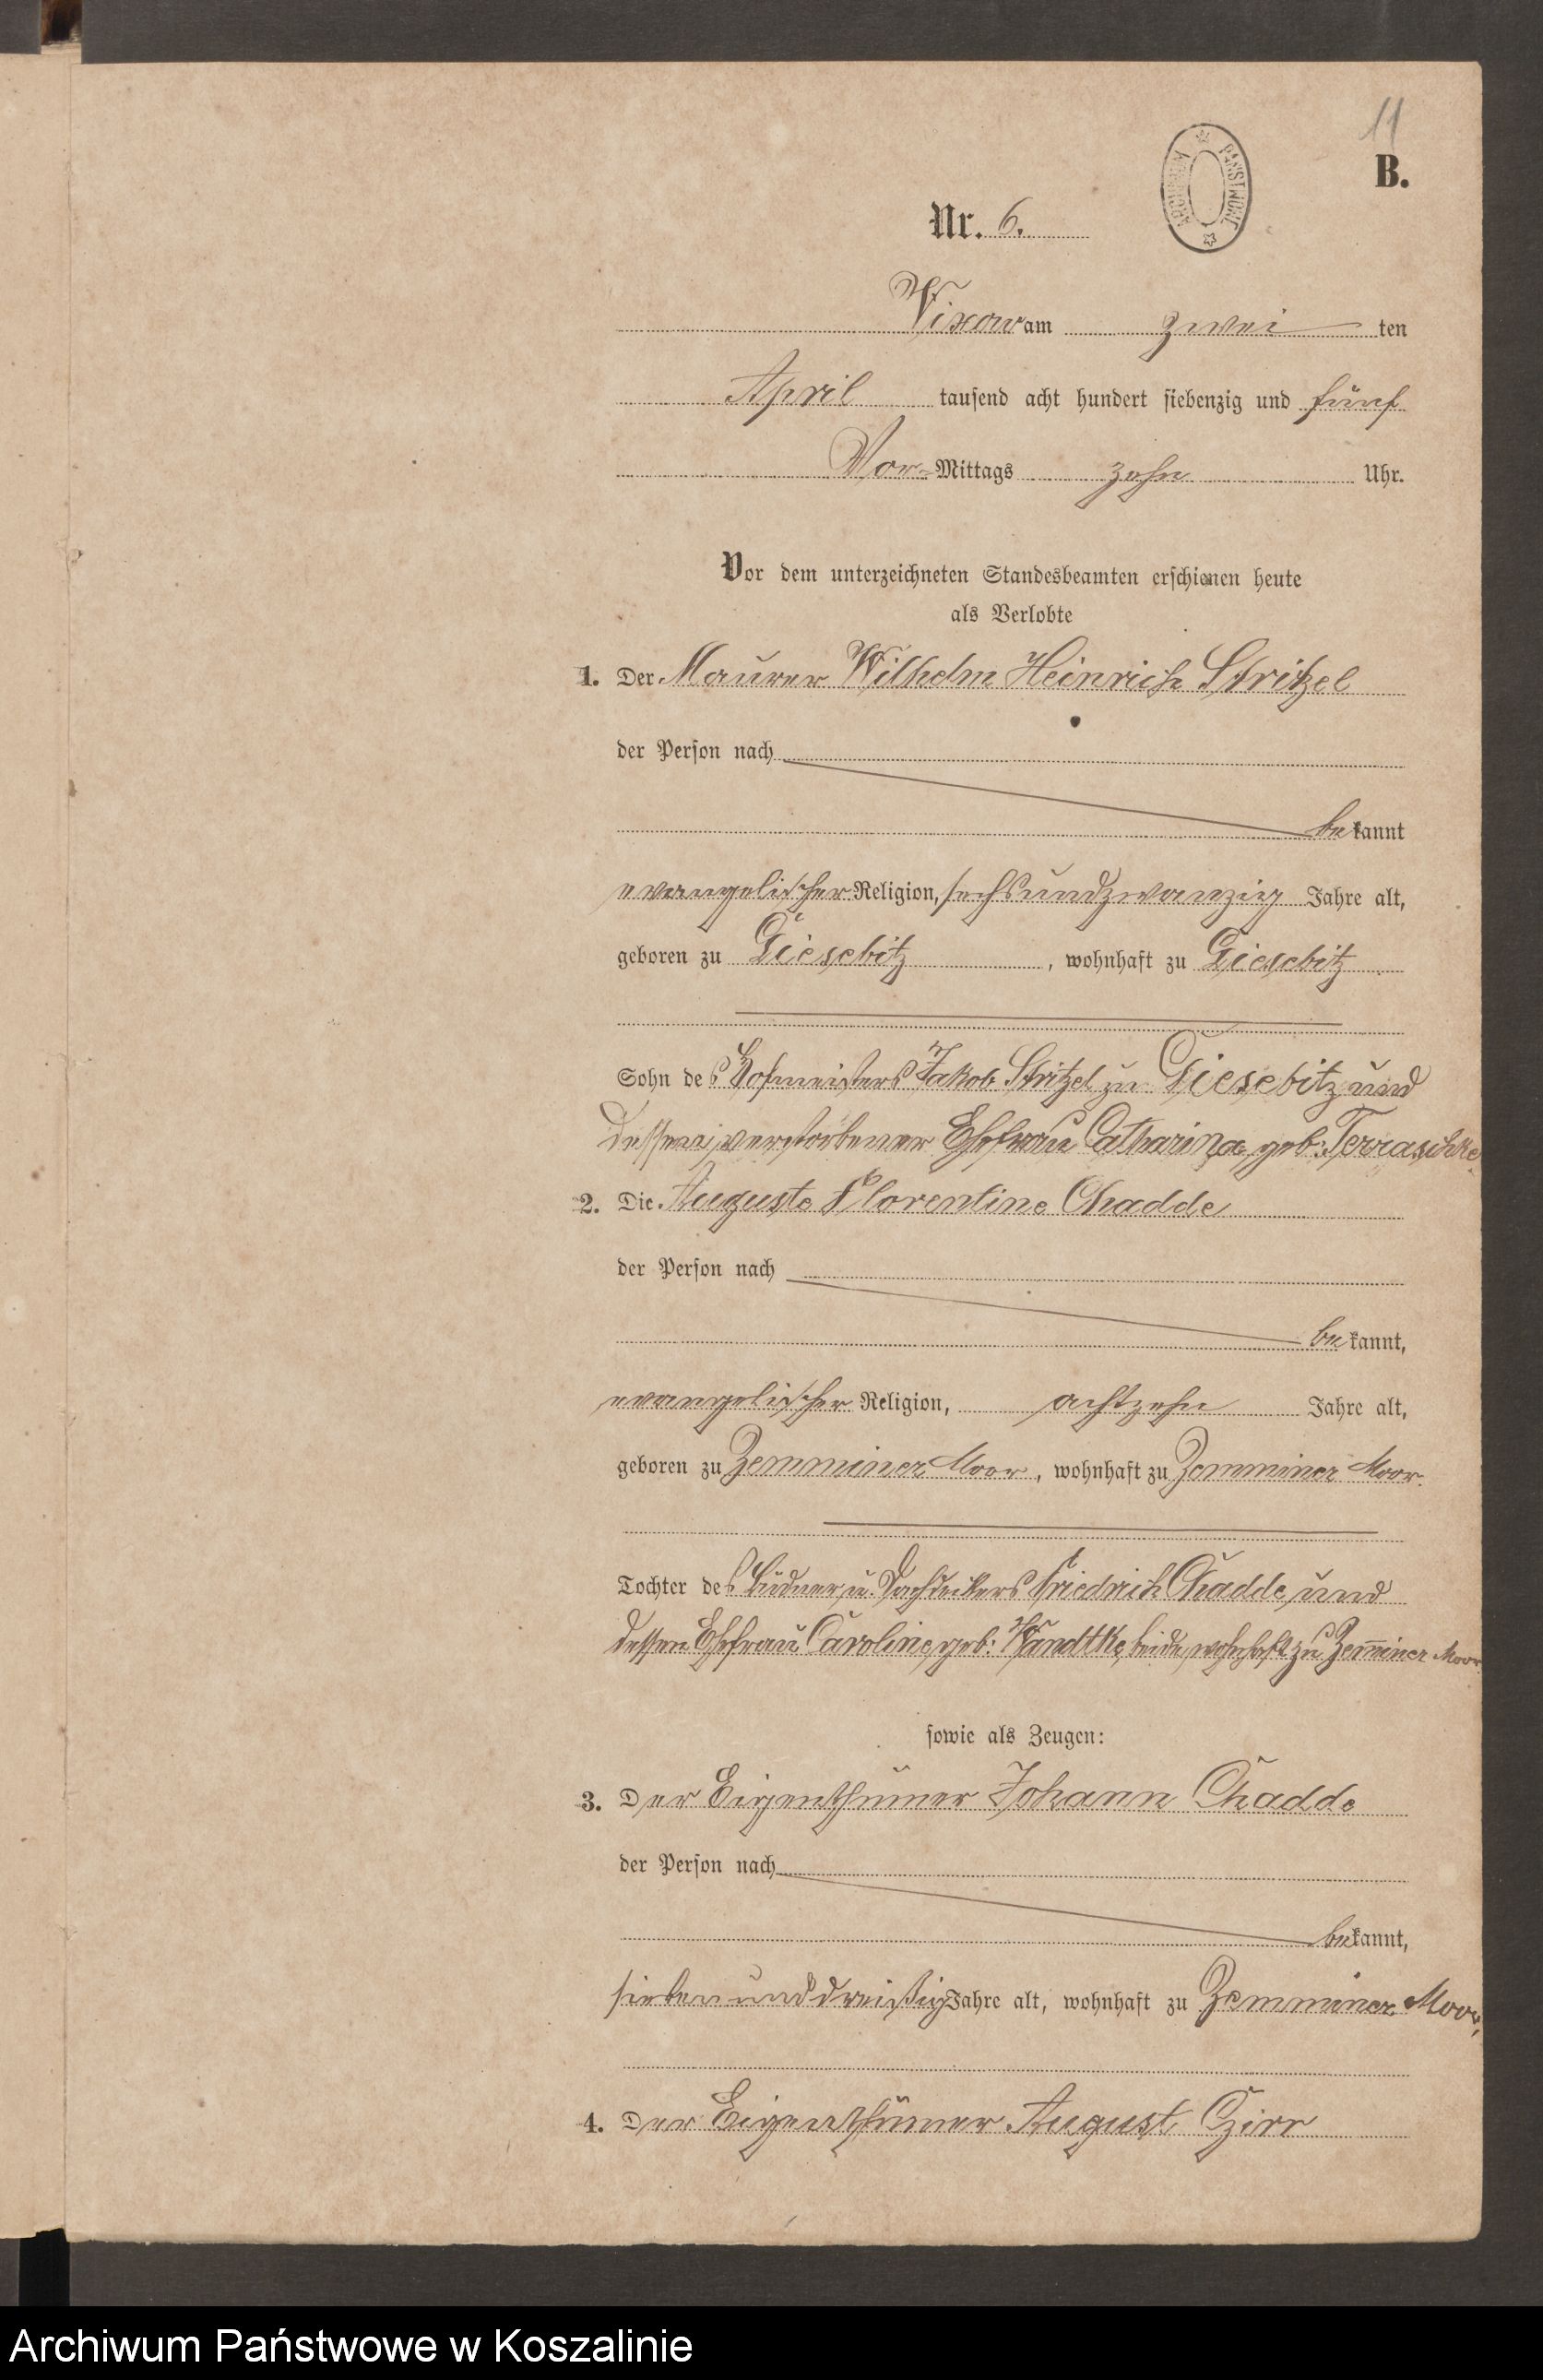 11
B.
ARCHIWUM PAŃSTWOWE
Nr. 6.
Vixow am zwei ten
April tausend acht hundert siebenzig und fünf
Vor-Mittags zehn Uhr.
Vor dem unterzeichneten Standesbeamten erschienen heute
als Verlobte
1. Der Maurer Wilhelm Heinrich Stritzel
der Person nach
bekannt
evangelischer Religion, sechsundzwanzig Jahre alt,
geboren zu Giesebitz, wohnhaft zu Giesebitz
Sohn des Hofmeisters Jakob Stritzel zu Giesebitz und
dessen verstorbener Ehefrau Catharina geb: Terraschke
2. Die Auguste Florentine Chadde
der Person nach
bekannt,
evangelischer Religion, achtzehn Jahre alt,
geboren zu Zemminer Moor, wohnhaft zu Zemminer Moor.
Tochter des Büdner u. Dachdeckers Friedrich Chadde und
dessen Ehefrau Caroline geb: Wandtke, beide wohnhaft zu Zem̅iner Moor
sowie als Zeugen:
3. Der Eigenthümer Johann Chadde
der Person nach
bekannt,
siebenunddreißig Jahre alt, wohnhaft zu Zemminer Moor,
4. Der Eigenthümer August Czirr
Archiwum Państwowe w Koszalinie